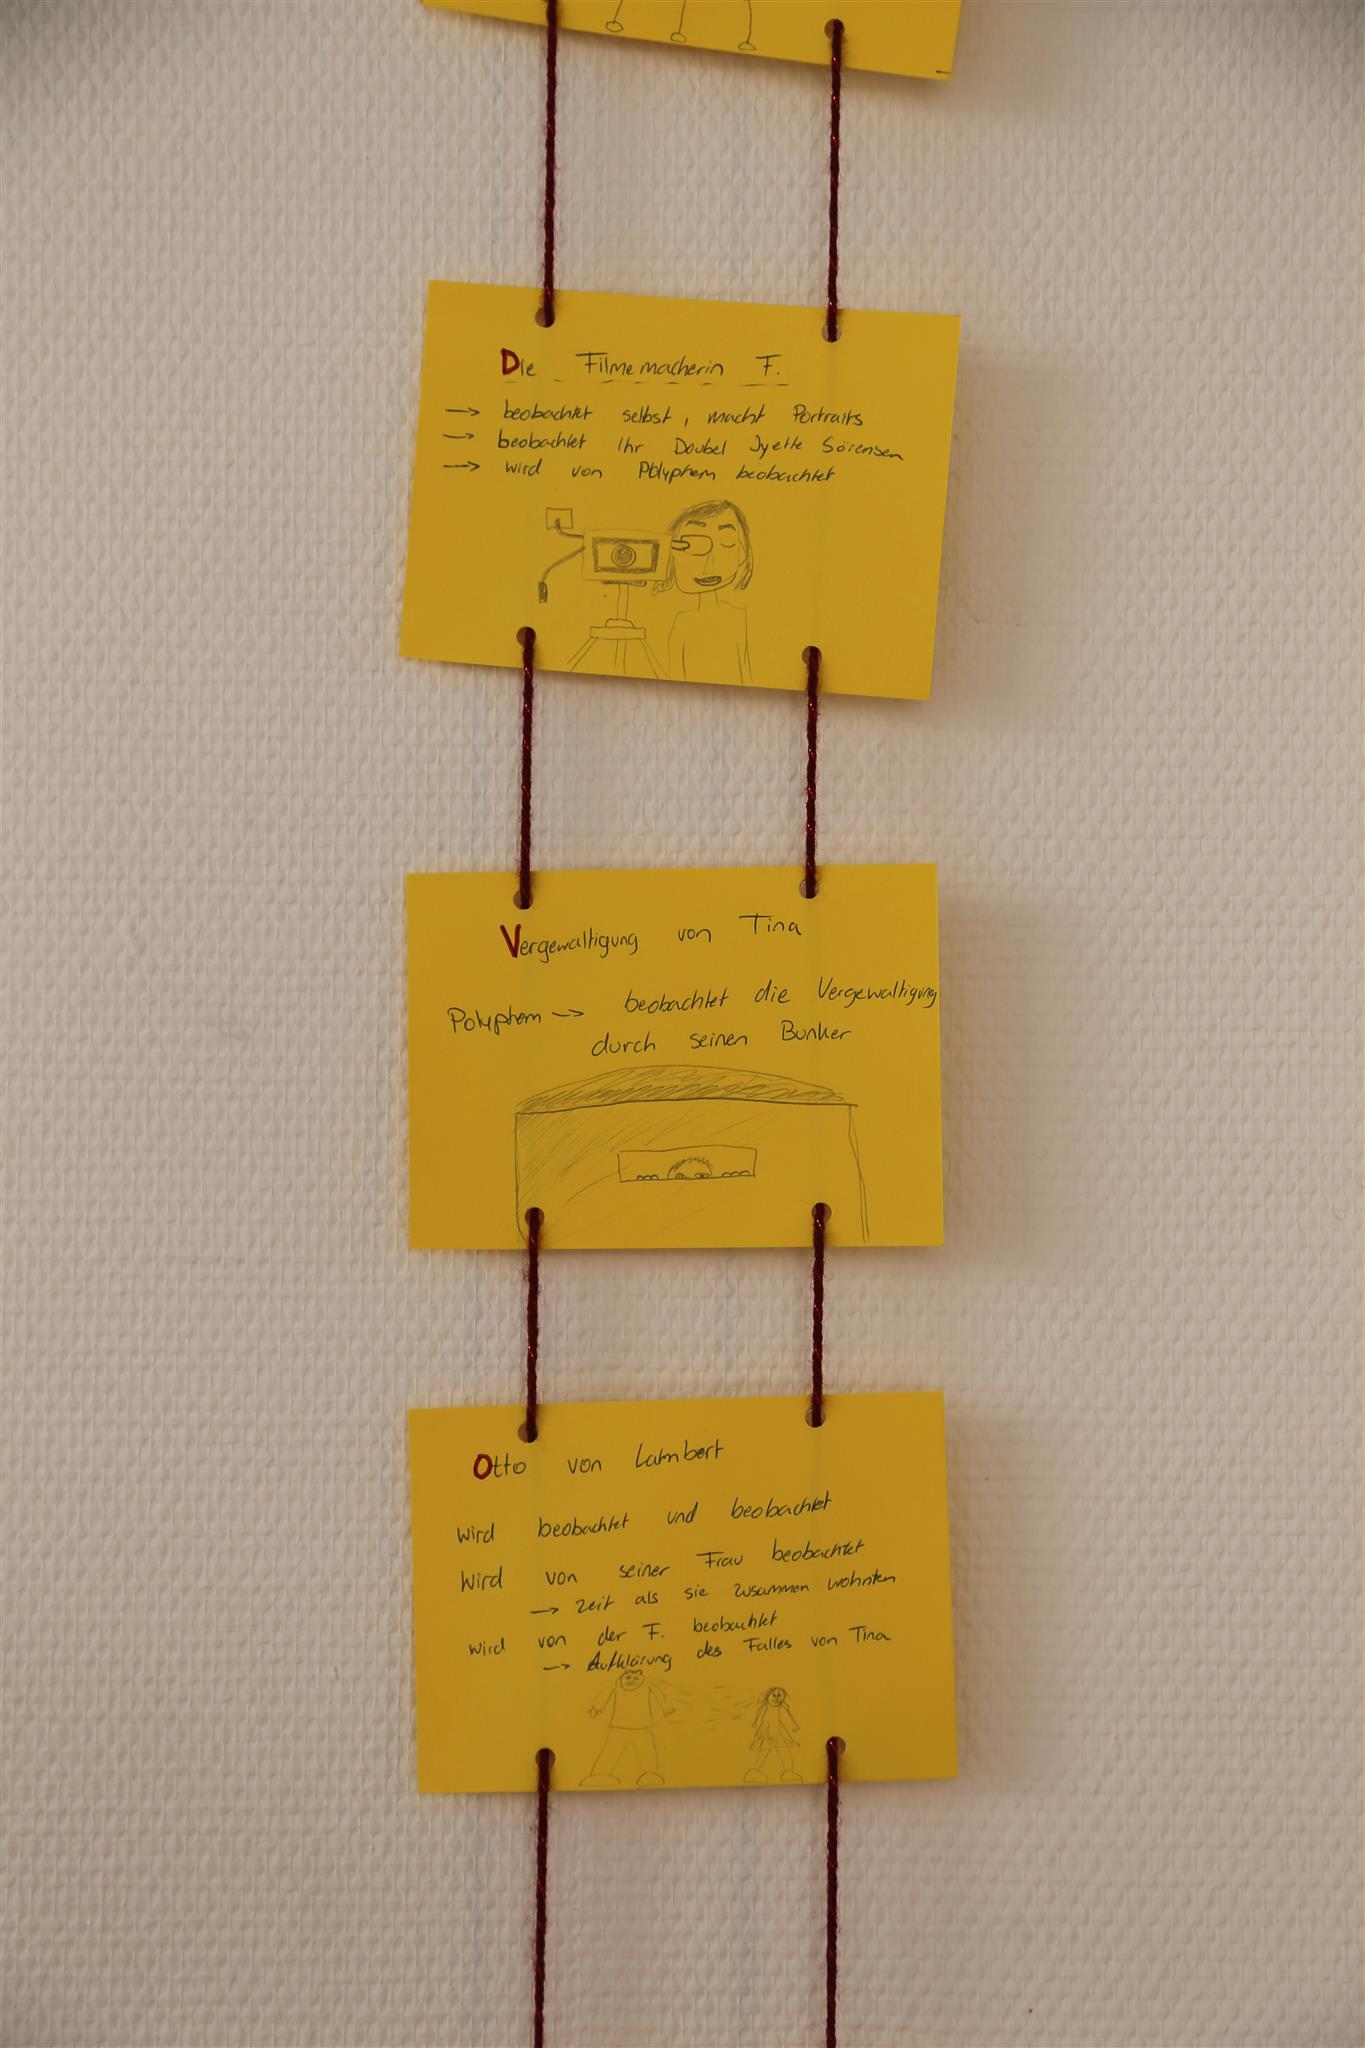 Die Filmemacherin F.
→ beobachtet selbst, macht Portraits
→ beobachtet Ihr Doubel Jyette Sörensen
→ wird von Polyphem beobachtet
Vergewaltigung von Tina
Polyphem → beobachtet die Vergewaltigung
durch seinen Bunker
Otto von Lambert
wird beobachtet und beobachtet
Wird von seiner Frau beobachtet
→ Zeit als sie zusammen wohnten
wird von der F. beobachtet
→ Aufklärung des Falles von Tina